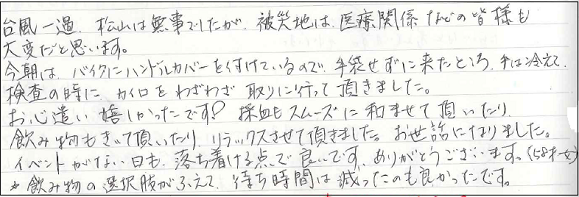 台風一過、松山は無事でしたが、被災地は、医療関係などの皆様も
大変だと思います。
今朝は、バイクにハンドルカバーを付けているので、手袋せずに来たところ、手は冷えて、
検査の時に カイロを わざわざ 取りに行って頂きました。
お心遣い 嬉しかったです♡ 採血もスムーズに 和ませて頂いたり
飲み物もきいて頂いたり、リラックスさせて頂きました。お世話になりました。
イベントがない日も、落ち着ける点で良いです。ありがとうございます。(58才女)
*飲み物の選択肢がふえて、待ち時間は減ったのも良かったです。